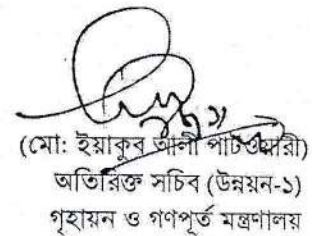 (মো: ইয়াকুব আলী পাটওয়ারী)
অতিরিক্ত সচিব (উন্নয়ন-১)
গৃহায়ন ও গণপূর্ত মন্ত্রণালয়